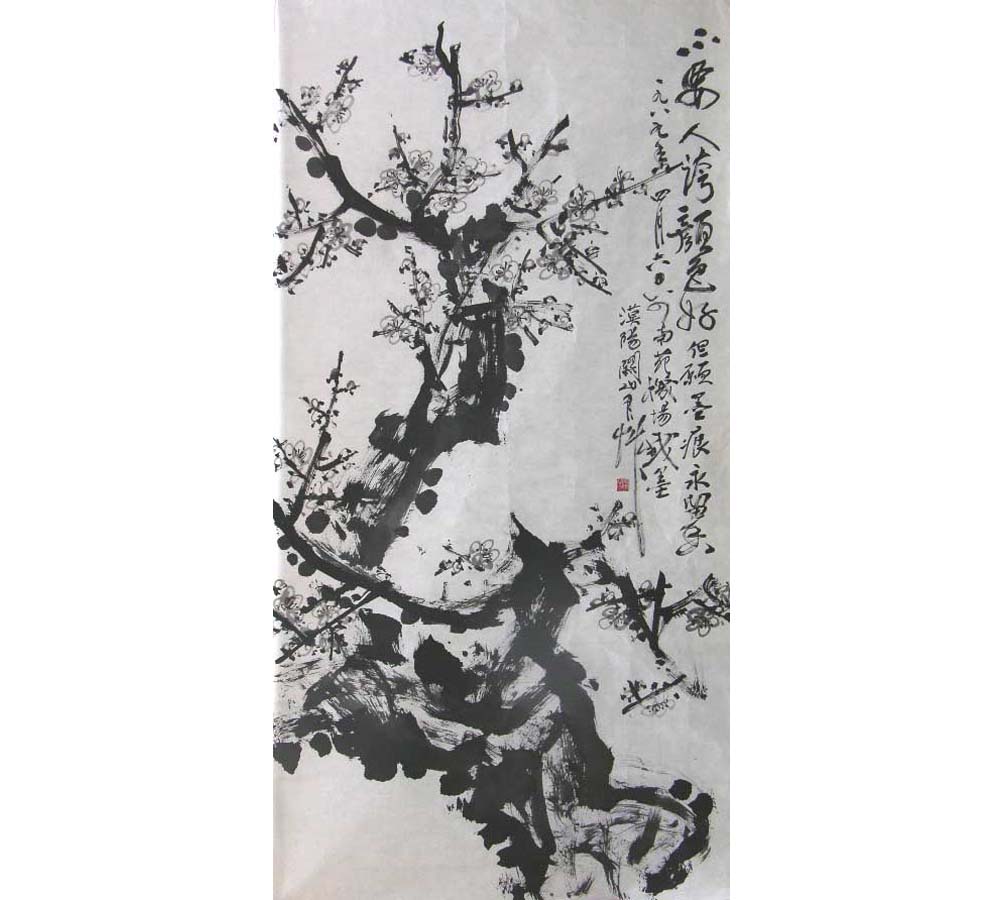 不要人誇顏色好但願墨痕永留香
一九八九年四月六日於南苑機場戲墨
漠陽關山月